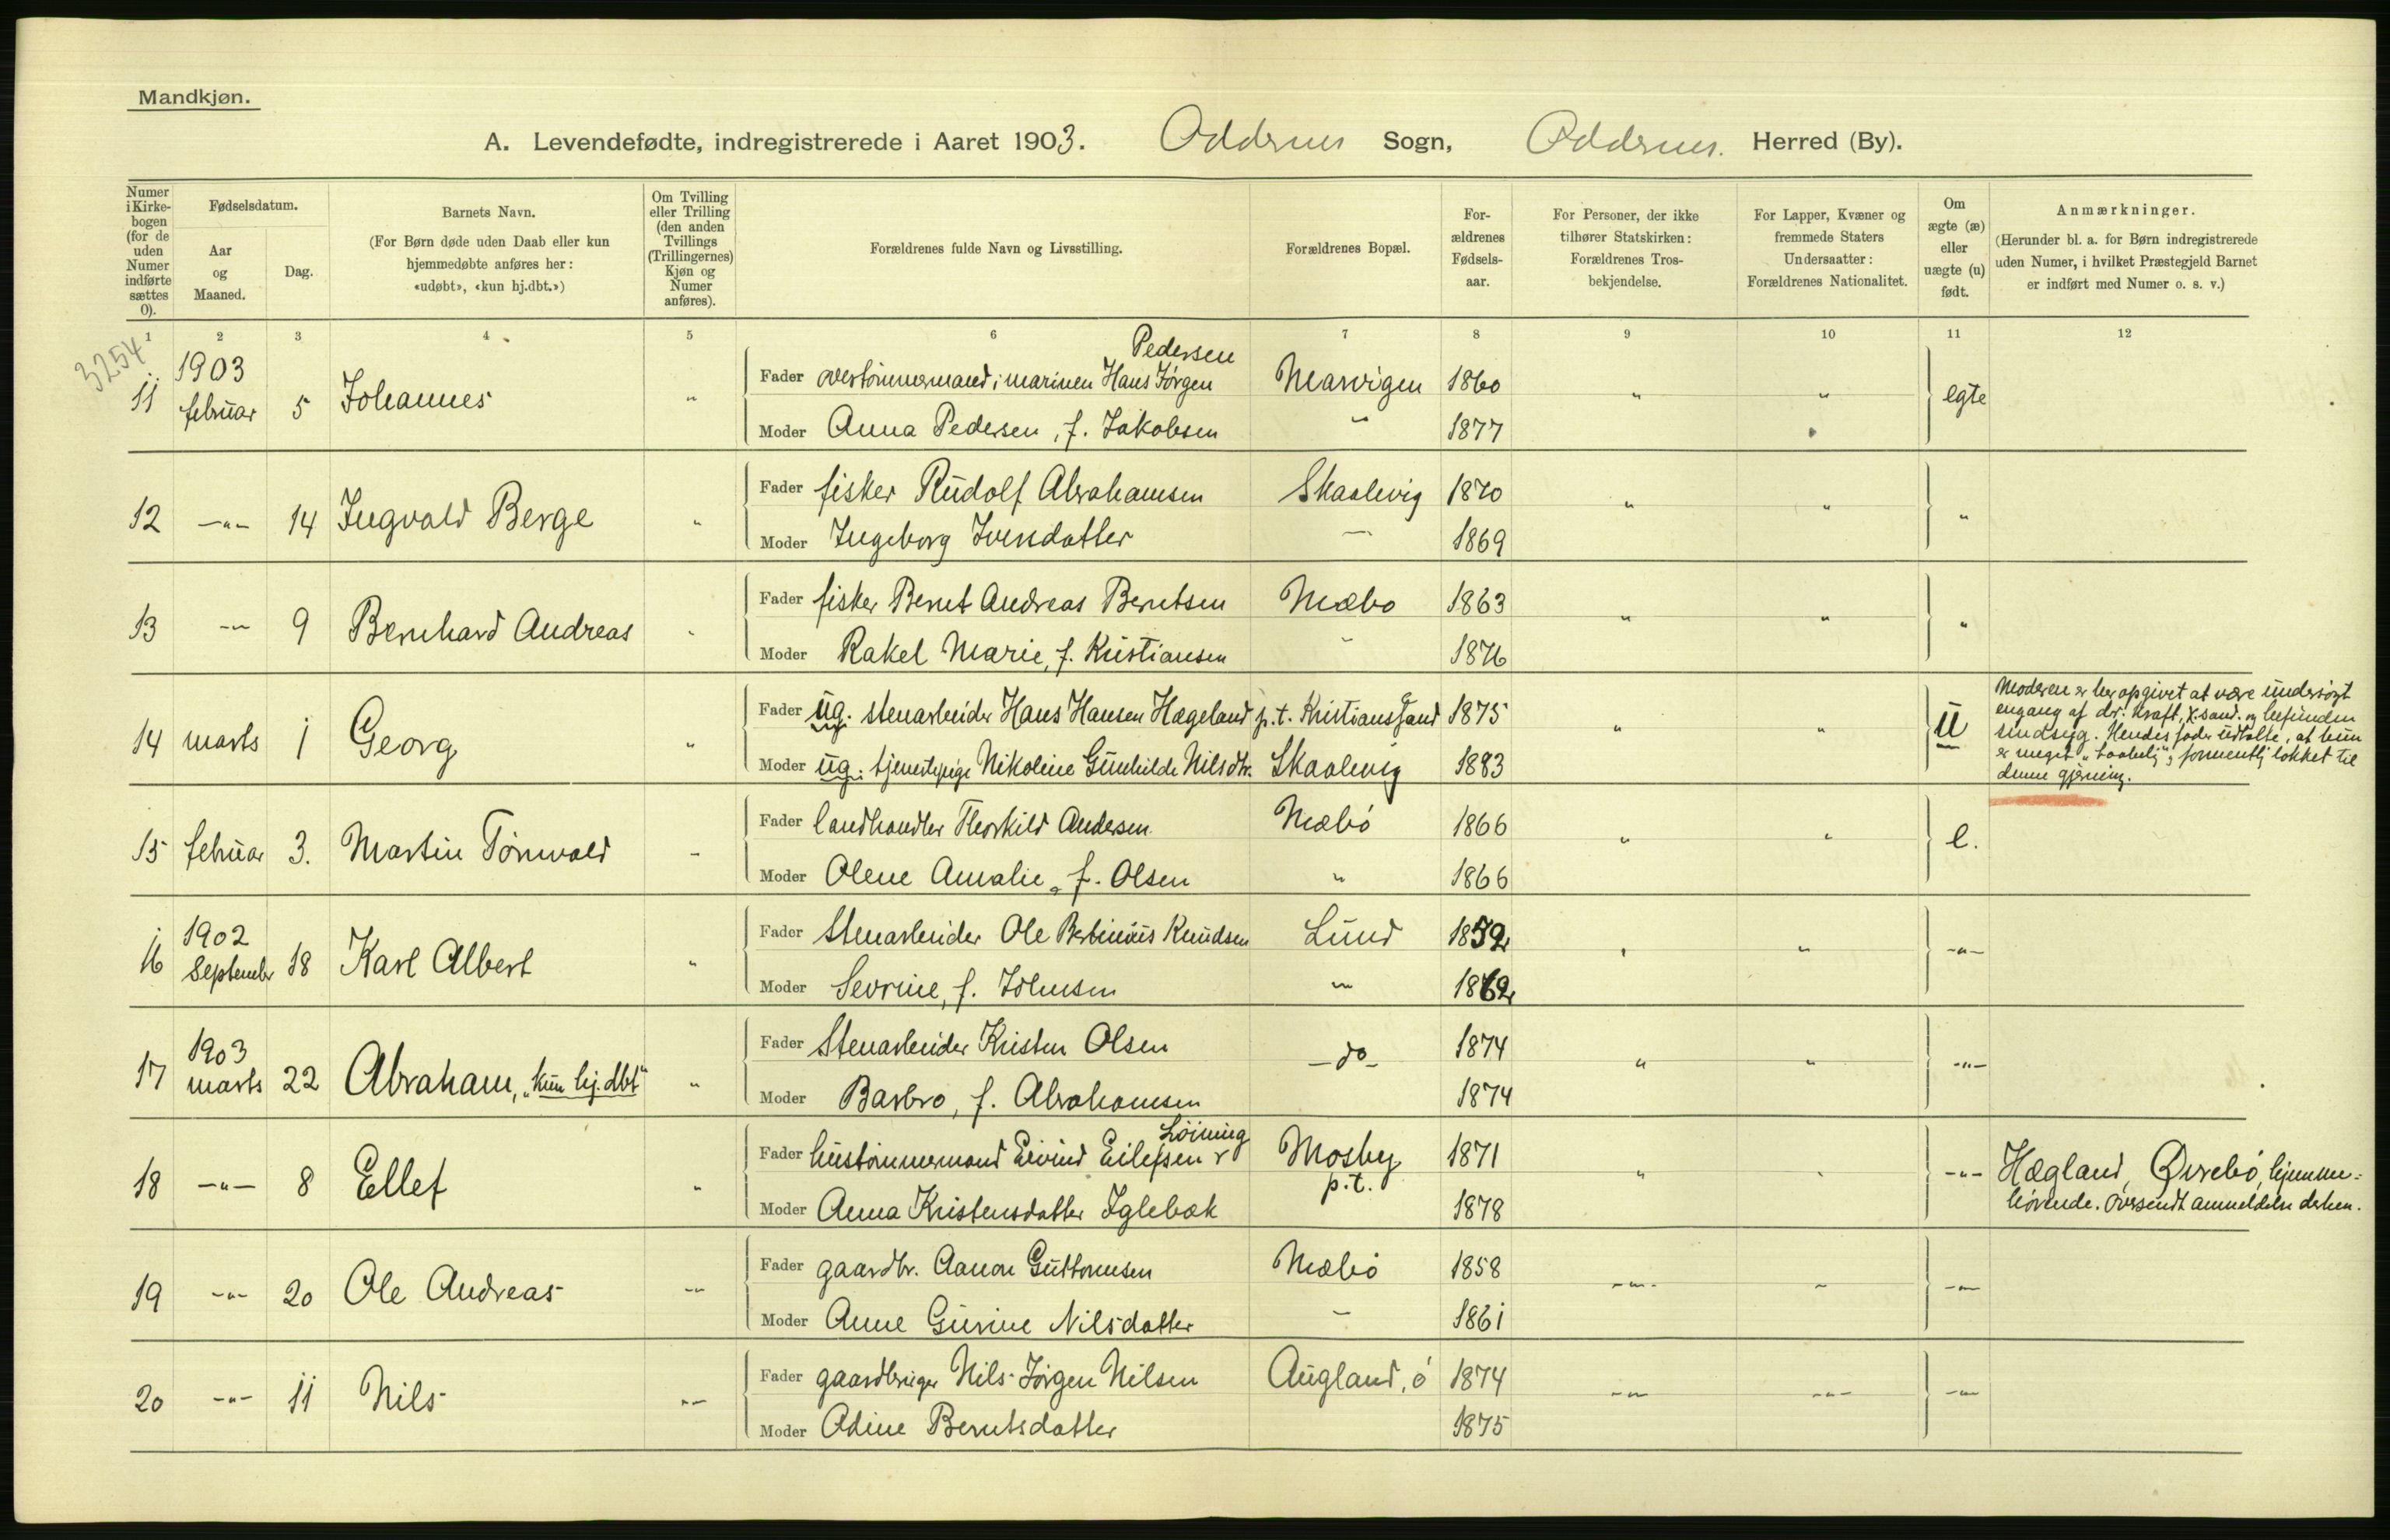 Mandkjøn.
A. Levendefødte, indregistrerede i Aaret 1903. Oddernes Sogn, Oddernes. Herred (By).
Numer i Kirke-bogen (for de uden Numer indførte sættes 0).
Fødselsdatum.
Aar og Maaned.
Dag.
Barnets Navn.
(For Børn døde uden Daab eller kun
hjemmedøbte anføres her:
«udøbt», «kun hj.dbt.»)
Om Tvilling
eller Trilling
(den anden
Tvillings
(Trillingernes)
Kjøn og
Numer
anføres).
Forældrenes fulde Navn og Livsstilling.
Forældrenes Bopæl.
For-
ældrenes
Fødsels-
aar.
For Personer, der ikke
tilhører Statskirken:
Forældrenes Tros-
bekjendelse.
For Lapper, Kvæner og
fremmede Staters
Undersaatter:
Forældrenes Nationalitet.
Om
ægte (æ)
eller
uægte (u)
født.
Anmærkninger.
(Herunder bl. a. for Børn indregistrerede
uden Numer, i hvilket Præstegjeld Barnet
er indført med Numer o. s. v.)
1 2 3 4 5 6 7 8 9 10 11 12
3254
11 1903 februar 5 Johannes " Fader overtømmermand i marinen Hans Jørgen Pedersen Marvigen 1860 " " egte
Moder Anna Pedersen, f. Jakobsen " 1877
12 -"- 14 Ingvald Berge " Fader fisker Rudolf Abrahamsen Skaalevig 1870 " " "
Moder Ingeborg Iversdatter — 1869
13 -"- 9 Bernhard Andreas " Fader fisker Bernt Andreas Berntsen Mæbø 1863 " " "
Moder Rakel Marie, f. Kristiansen " 1876
14 marts 1 Georg " Fader ug. stenarbeider Hans Hansen Hægeland p.t. Kristianssand 1875 " " U
Moder ug. tjenestepige Nikoline Gunhilde Nilsdtr. Skaalevig 1883
Moderen er her opgivet at være undersøgt
engang af dr. Kraft, X.sand. og befunden
sindsyg. Hendes fader udtalte, at hun
er meget "taabelig", formentlig lokket til
denne gjerning.
15 februar 3. Martin Tørnvald - Fader landhandler Thorkild Andersen Mæbø 1866 " " e.
Moder Olene Amalie, f. Olsen " 1866
16 1902 September 18 Karl Albert " Fader Stenarbeider Ole Knudsen Lund 1852 " " -"-
Moder Sevrine, f. Johnsen " 1862
17 1903 marts 22 Abraham, "kun hj.dbt" " Fader Stenarbeider Kristen Olsen -do- 1874 " " -"-
Moder Barbro, f. Abrahamsen 1874
18 -"- 8 Ellef " Fader hustømmermand Eivind Eilefsen Løining Mosby p.t. 1871 " " -"- Hægland, Øvrebø, hjemme=
Moder Anna Kristensdatter Iglebæk 1878 hørende. Oversendt anmeldelse derhen.
19 -"- 20 Ole Andreas -"- Fader gaardbr. Aanon Guttormsen Mæbø 1858 -"- " -"-
Moder Anne Gurine Nilsdatter " 1861
20 -"- 11 Nils -"- Fader gaardbruger Nils Jørgen Nilsen Augland, ø 1874 -"- -"- -"-
Moder Odine Berntsdatter 1875